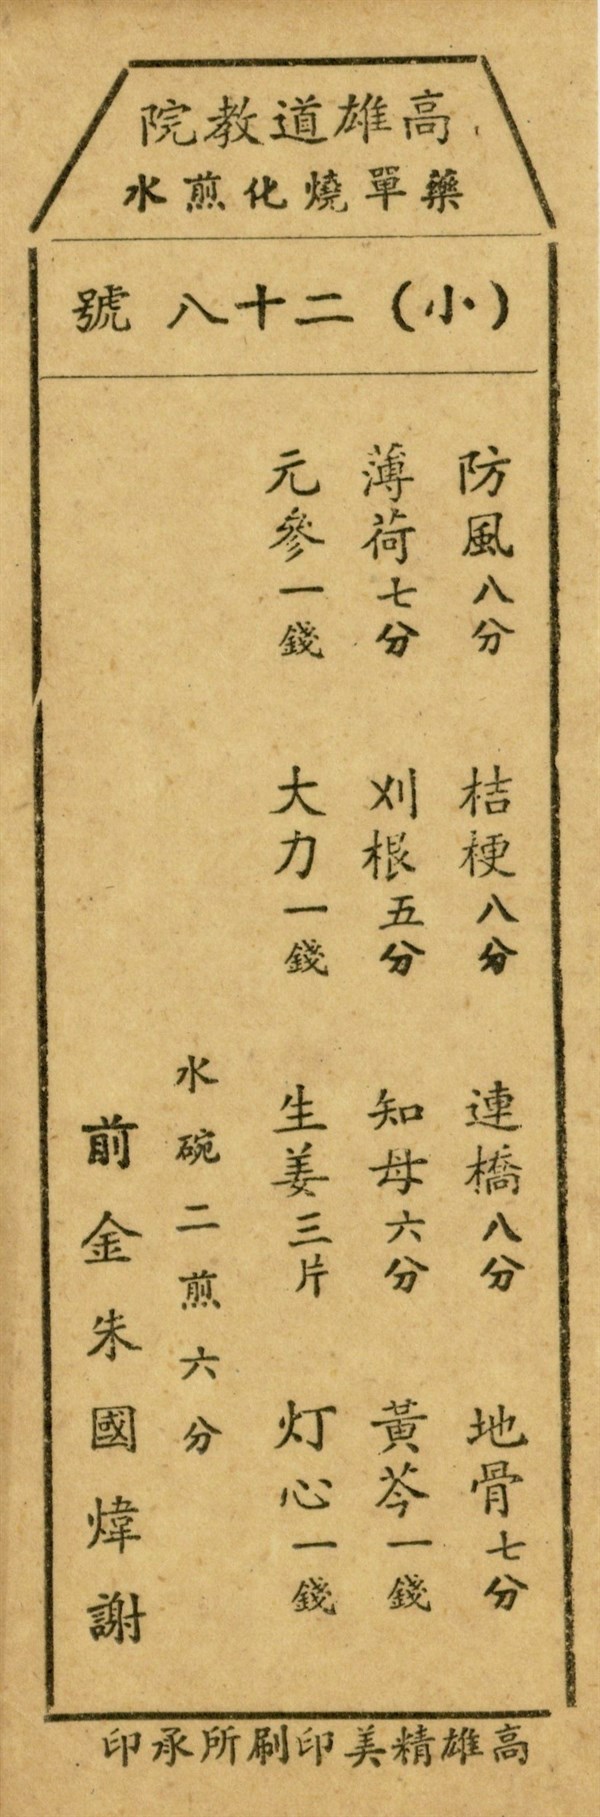 高雄道教院
藥單燒化煎水
(小)二十八號
防風八分 桔梗八分 連橋八分 地骨七分
薄荷七分 刈根五分 知母六分 黃芩一錢
元參一錢 大力一錢 生姜三片 灯心一錢
水碗二煎六分
前金朱國煒謝
高雄精美印刷所承印